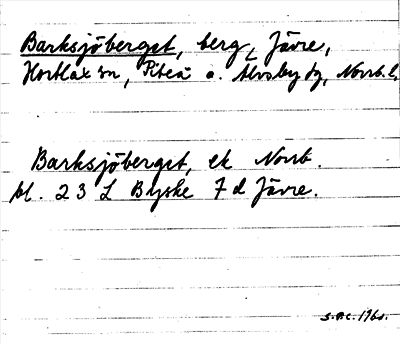 Barksjöberget, berg, Jävre,
Hortlax sn, Piteå o. Älvsby tg, Norrb. l.
Barksjöberget, ek Norrb.
bl. 23 L Byske 7 d Jävre.
S.A.C. 1960.